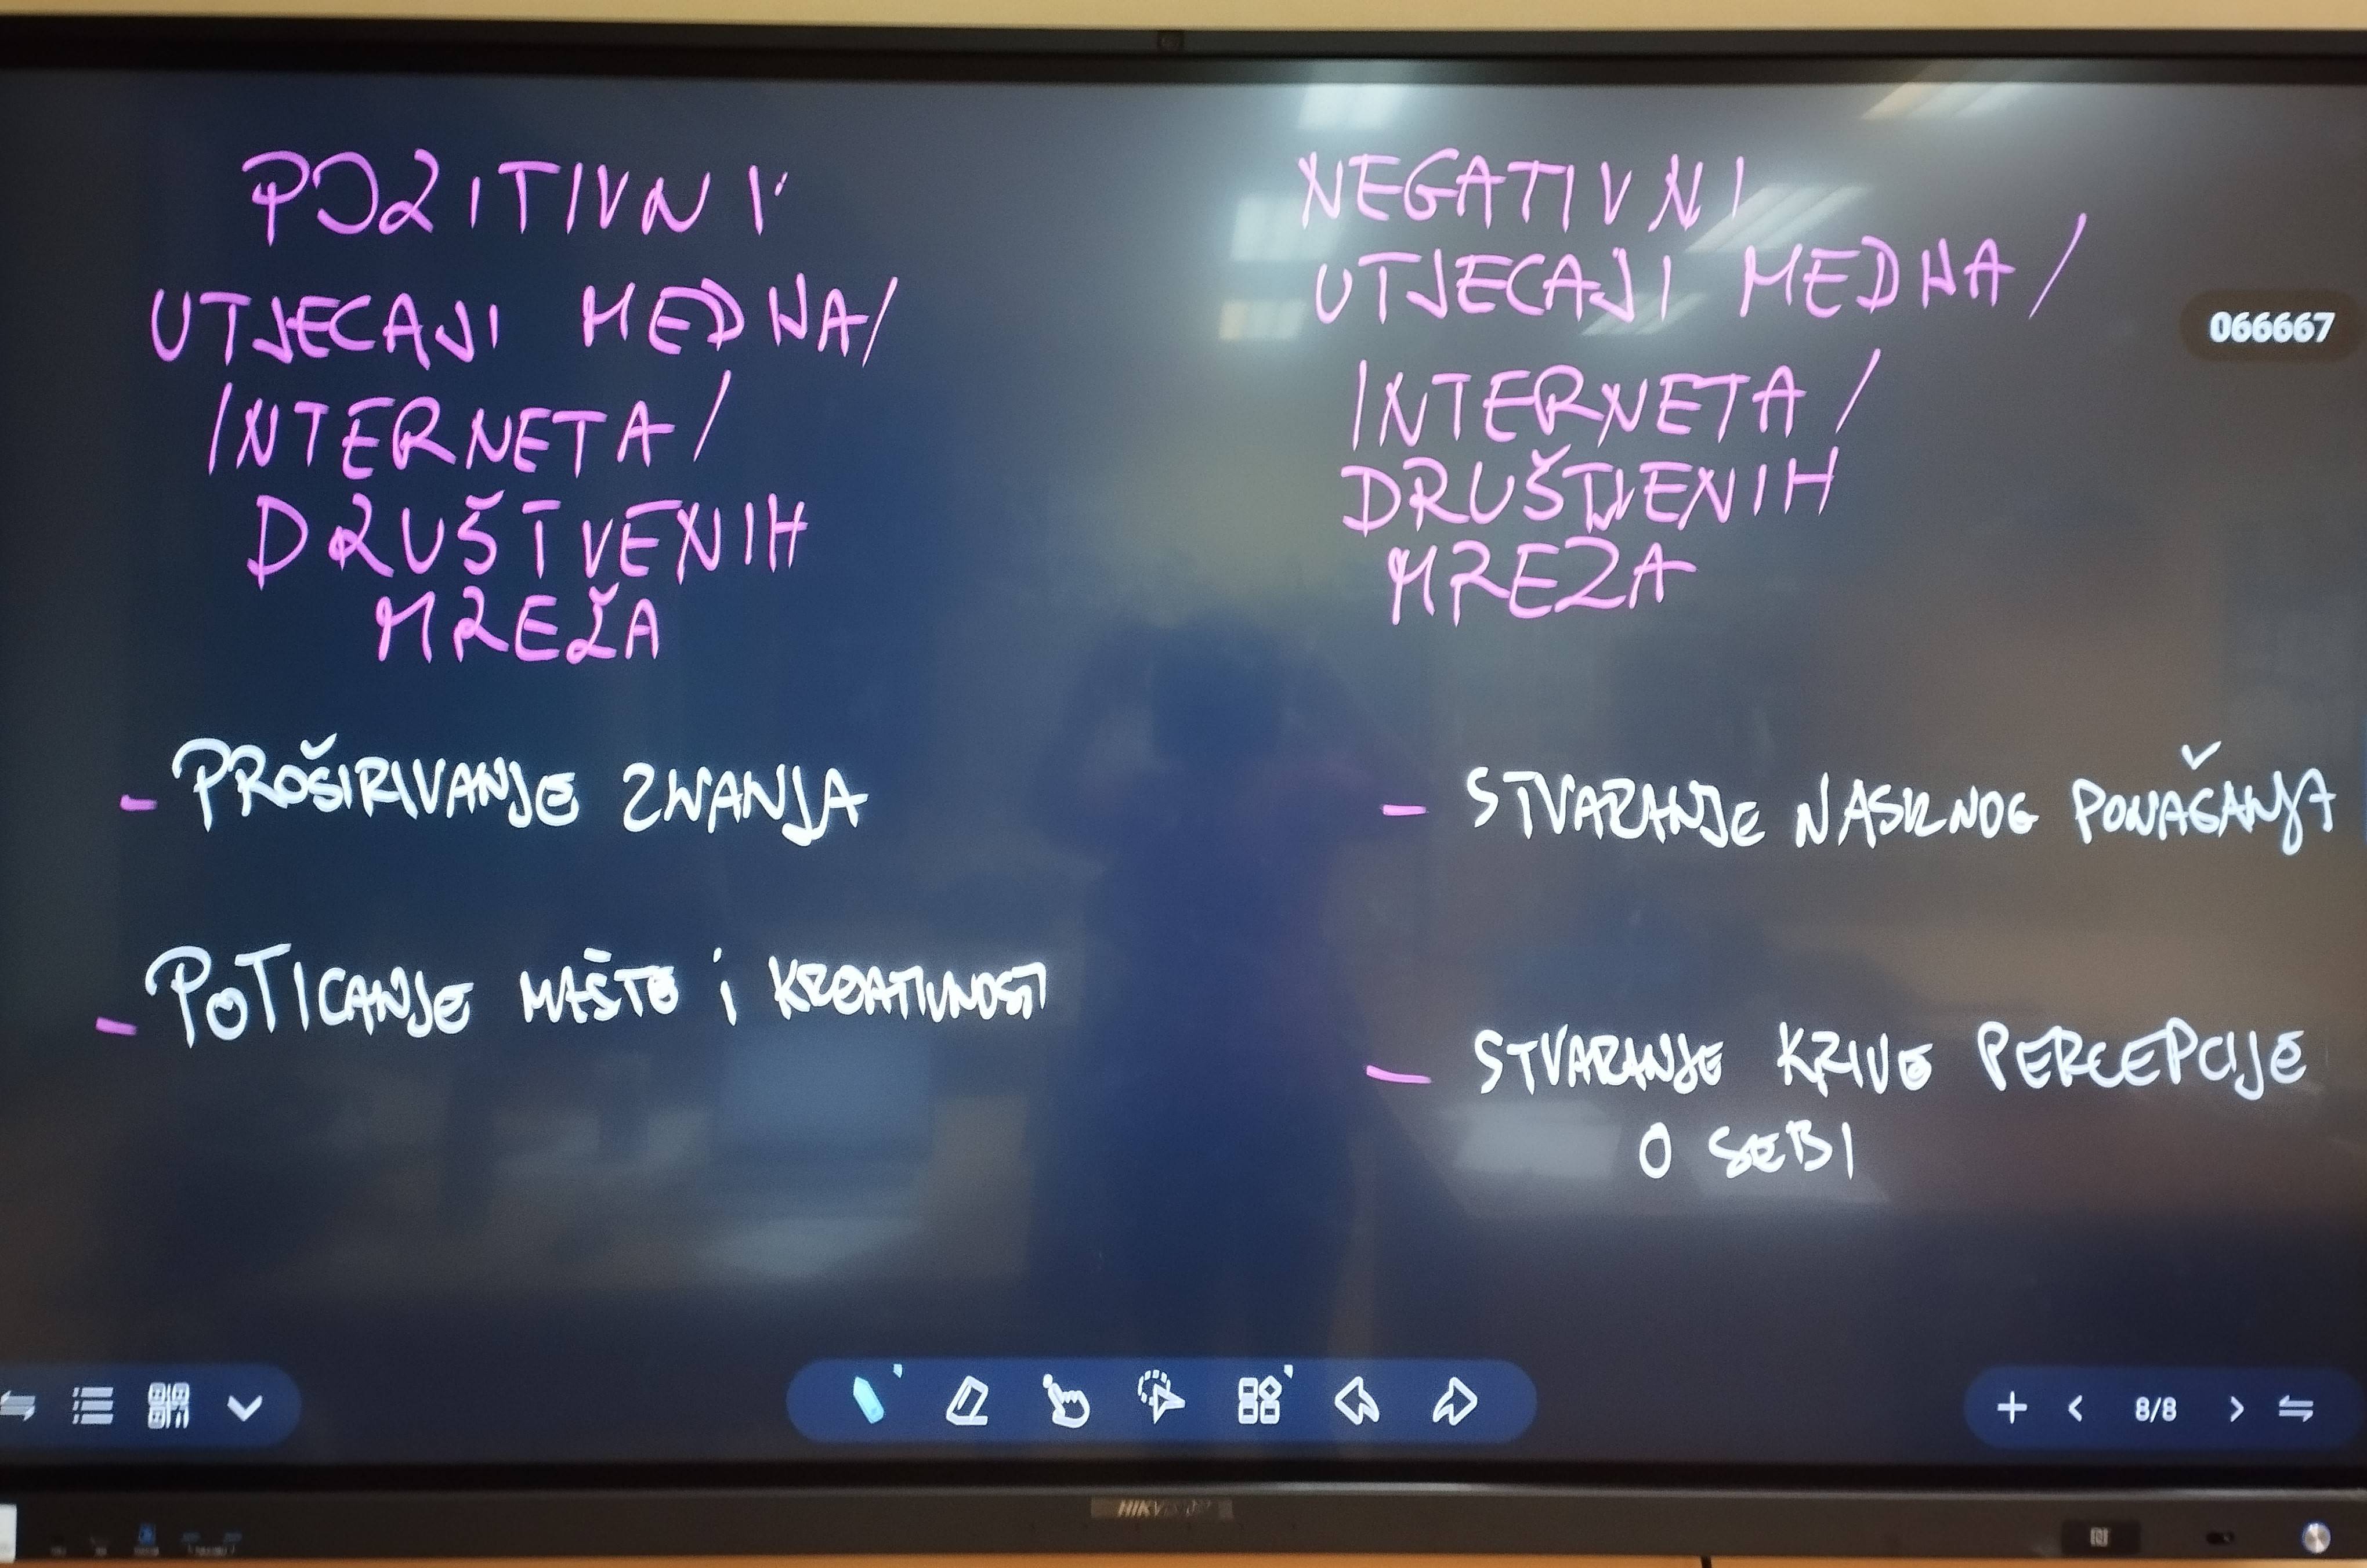 POZITIVNI
UTJECAJI MEDIJA/
INTERNETA/
DRUŠTVENIH
MREŽA
- PROŠIRIVANJE ZNANJA
- POTICANJE MAŠTE i KREATIVNOSTI
NEGATIVNI
UTJECAJI MEDIJA/
INTERNETA/
DRUŠTVENIH
MREZA
- STVARANJE NASILNOG PONAŠANJA
- STVARANJE KRIVE PERCEPCIJE
O SEBI
066667
8/8
HIKVISION